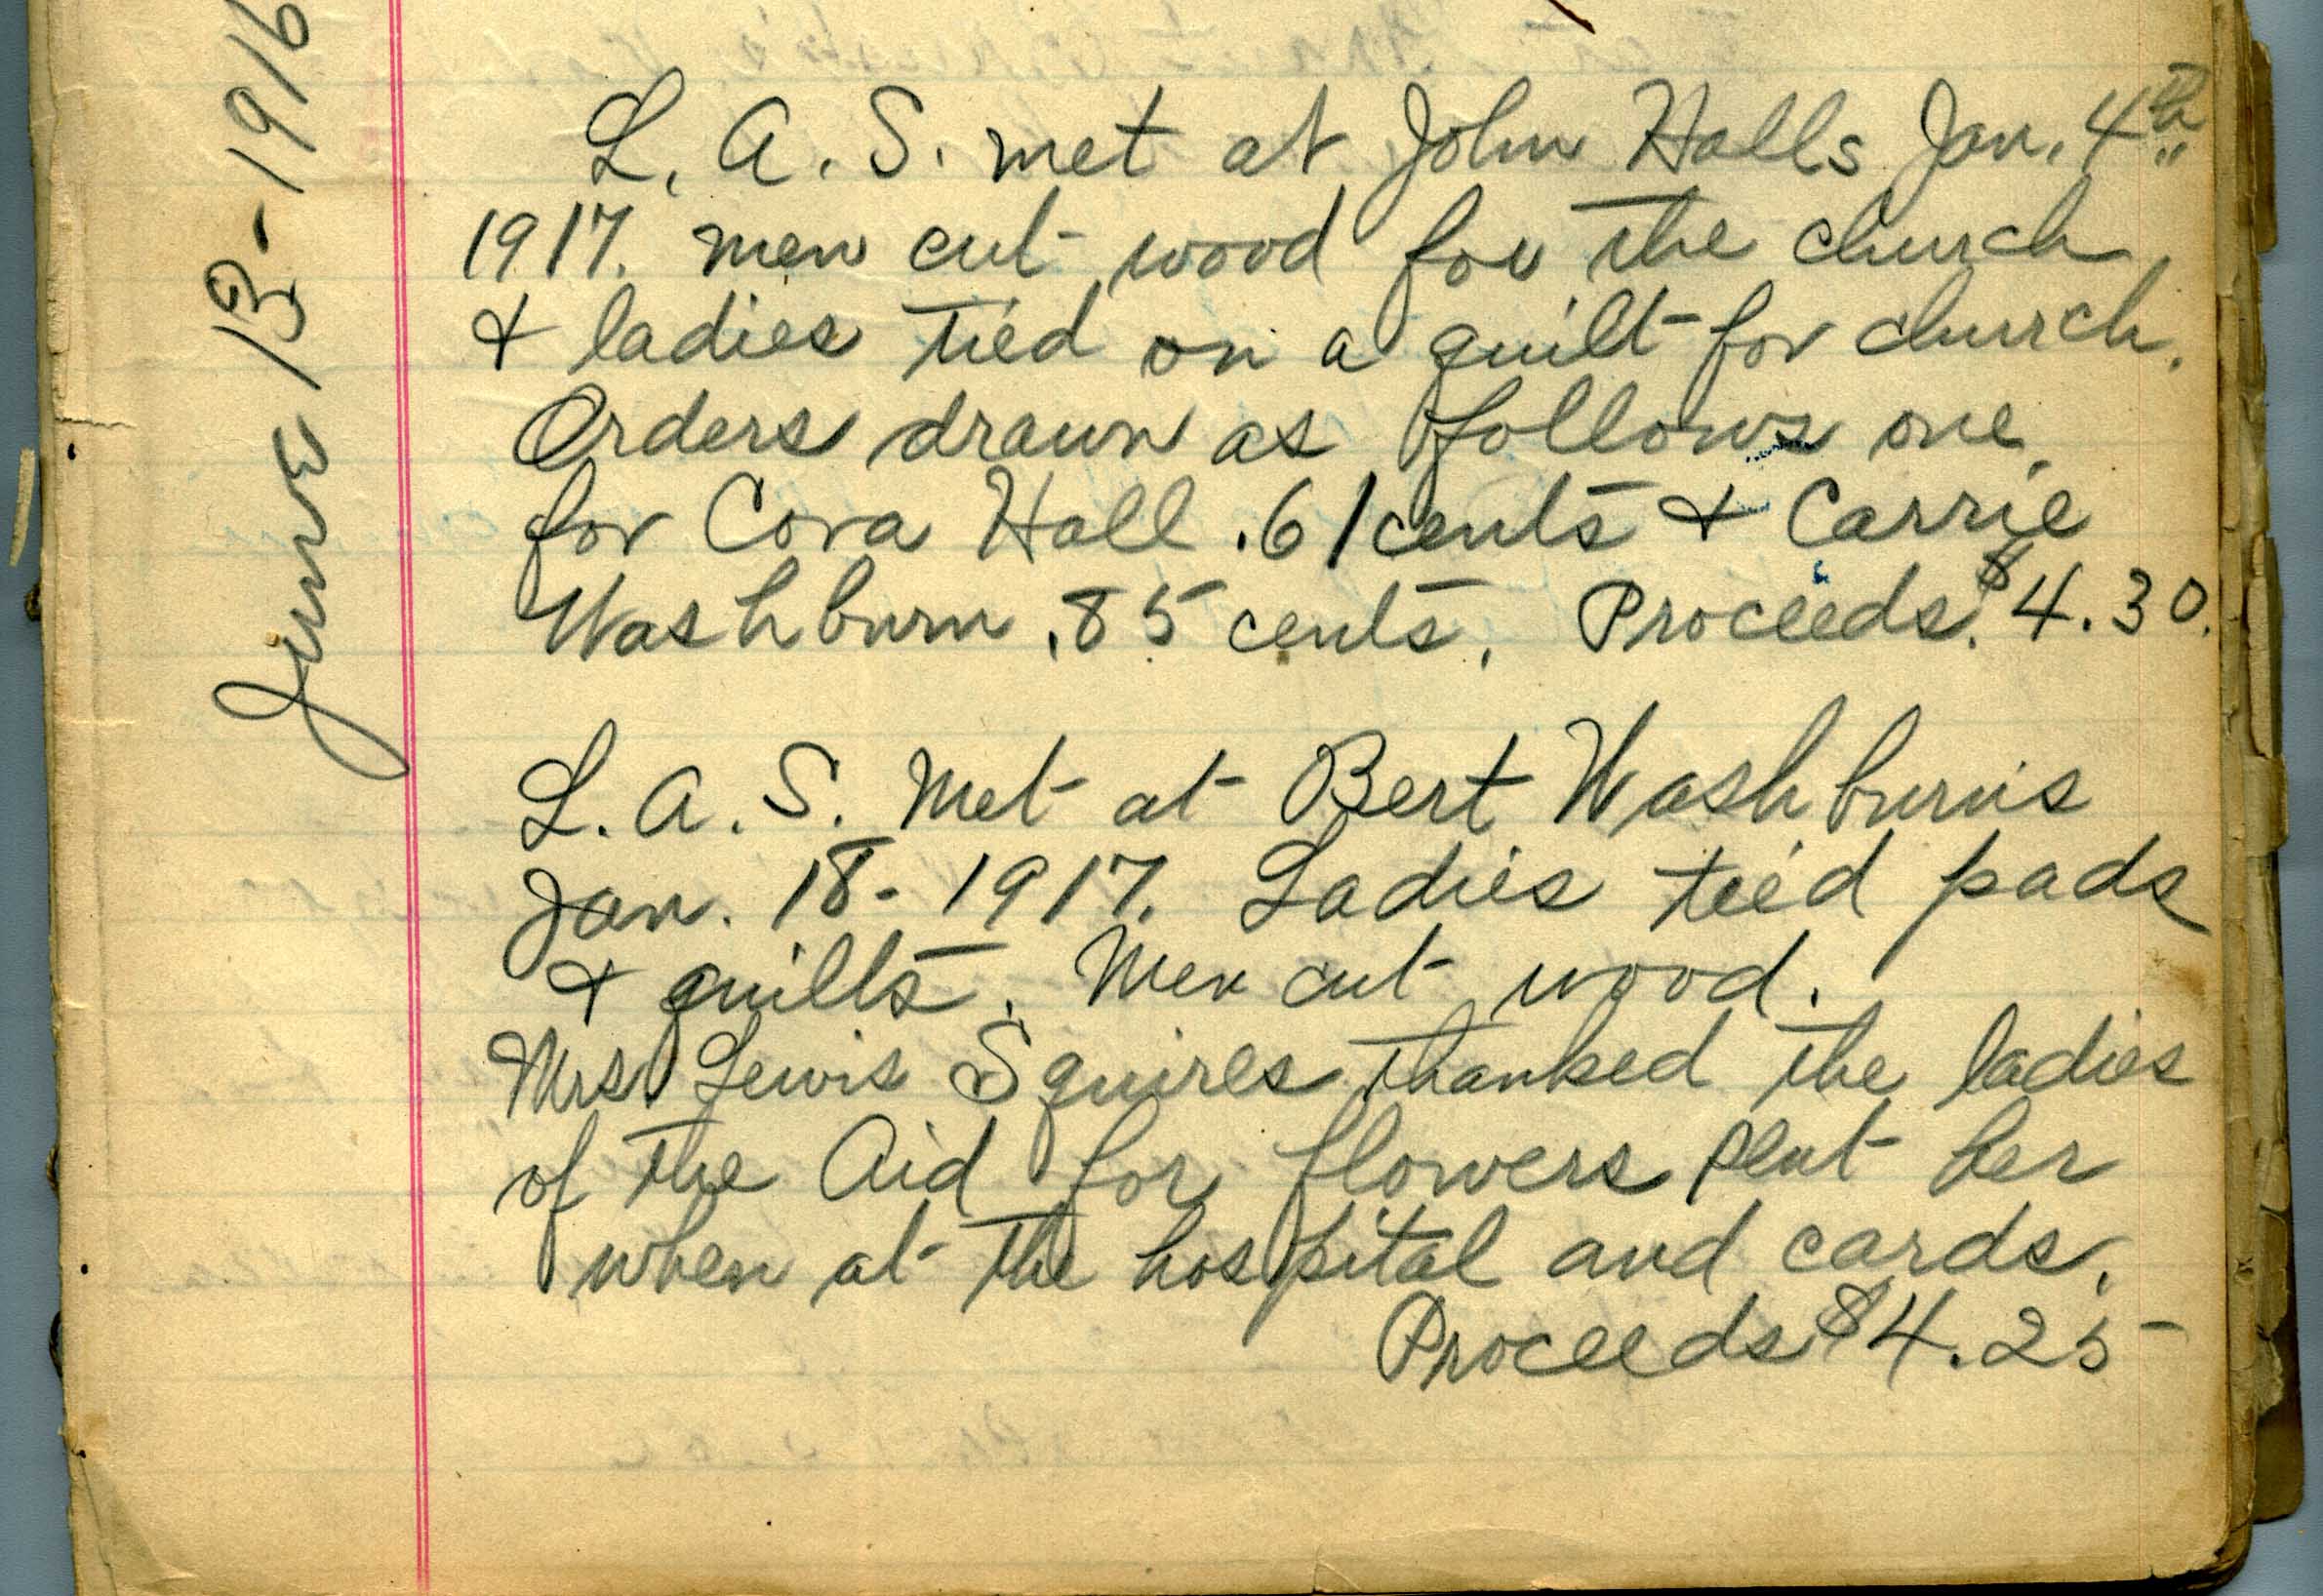 June 13-1916
L. A. S. met at John Halls Jan. 4th
1917. men cut wood for the church
& ladies tied on a quilt for church.
Orders drawn as follows one
for Cora Hall .61 cents & Carrie
Washburn .85 cents. Proceeds. $4.30.
L. A. S. Met at Bert Washburn's
Jan. 18-1917. Ladies tied pads
& quilts. Men cut wood.
Mrs Lewis Squires thanked the ladies
of the Aid for flowers sent her
when at the hospital and cards.
Proceeds $4.25